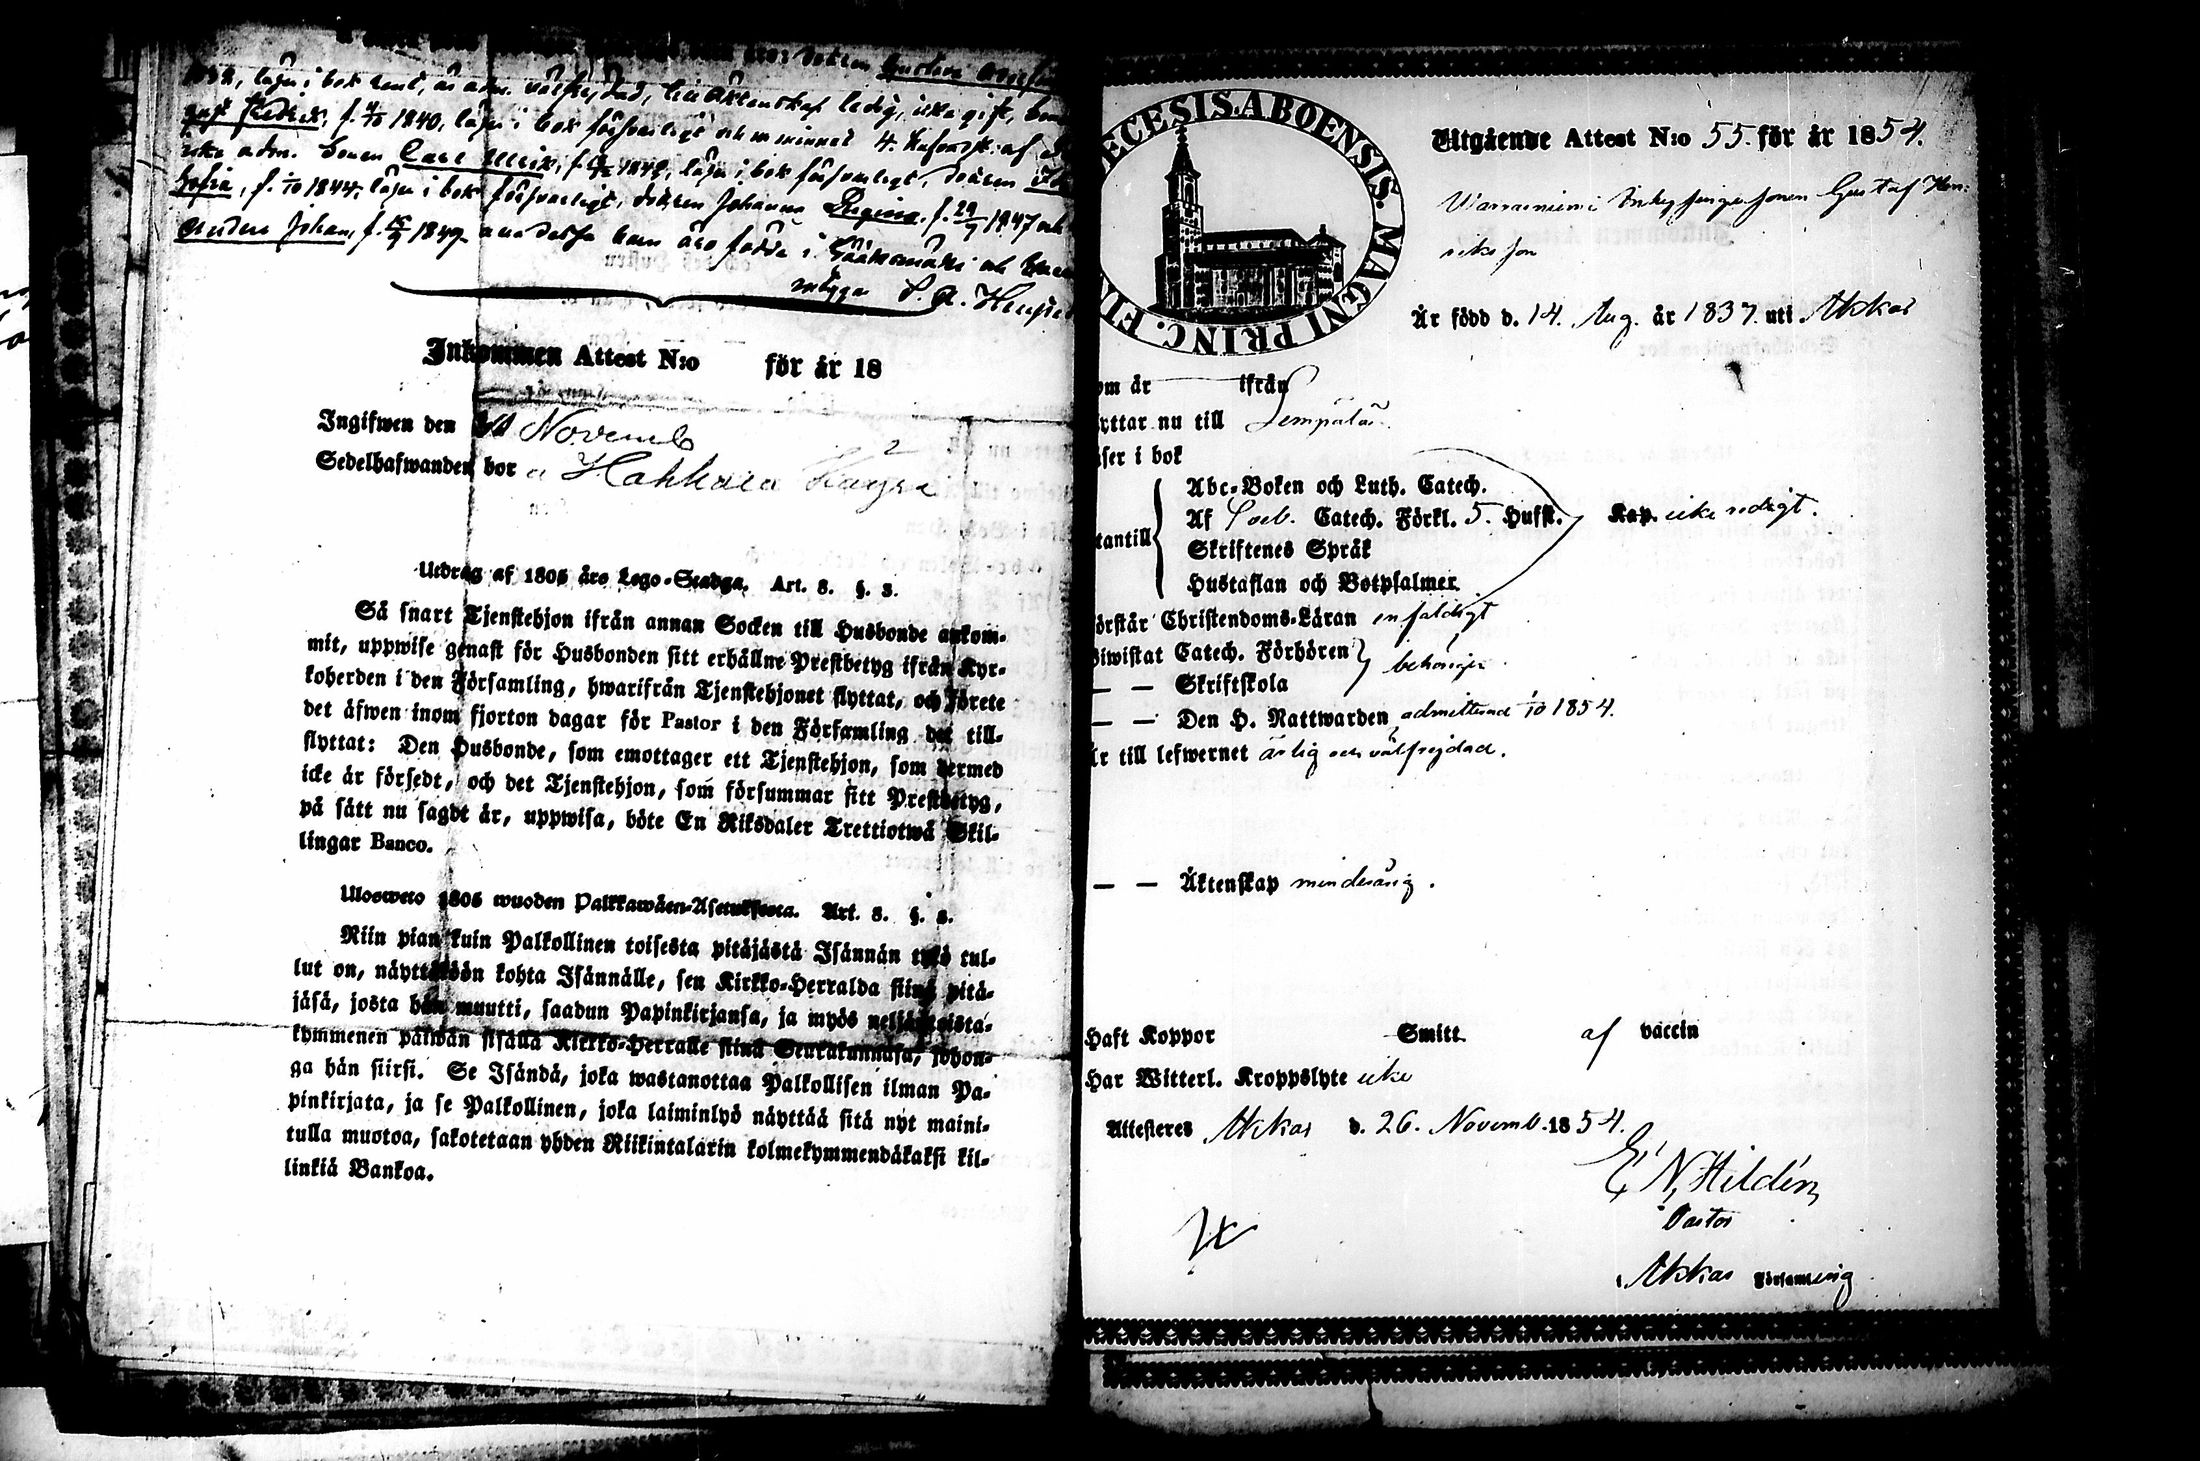 dottren Gustava
1832, läser i bok rent, är adm. välfrejdad, till äktenskap ledig, icke gift,
Fredrik, f. 4/10 1840, läser i bok försvarligt och u. minnet 4. Hufvudst. af
icke adm. Sonen Carl Ulrik, f. 1842, läser i bok försvarligt, dottren
Sofia, f. 1/10 1844, läser i bok försvarligt, dottren Johanna Regina f. 29/7 1847 och
Anders Johan, f. 15/9 1849. alla dessa barn äro födde i Sääksmäki och
intyga
Inkommen Attest N:o för år 18
Ingifwen den Novemb
Sedelhafwanden bor a Hahkala
Utdrag af 1805 års Lego-Stadga. Art. 8. §. 3.
Så snart Tjenstehjon ifrån annan Socken till Husbonde ankom-
mit, uppwise genast för Husbonden sitt erhållne Prestbetyg ifrån Kyr-
koherden i den Församling, hwarifrån Tjenstehjonet flyttat, och förete
det äfwen inom fjorton dagar för Pastor i den Församling det till-
flyttat: Den Husbonde, som emottager ett Tjenstehjon, som dermed
icke är försedt, och det Tjenstehjon, som försummar sitt Prestbetyg,
på sätt nu sagdt är, uppwisa, böte En Riksdaler Trettiotwå Skil-
lingar Banco.
Ulosweto 1805 wuoden Palkkawäen-Asetuksesta. Art. 8. §. 3.
Niin pian kuin Palkollinen toisesta pitäjästä Isännän tykö tul-
lut on, näyttäköön kohta Isännälle, sen Kirkko-Herralda siinä pitä-
jäsä, josta hän muutti, saadun Papinkirjansa, ja myös neljäntoista-
kymmenen päiwän sisällä Kirkko-Herralle siinä Seurakunnasa, johon-
ga hän siirsi. Se Isändä, joka wastanottaa Palkollisen ilman Pa-
pinkirjata, ja se Palkollinen, joka laiminlyö näyttää sitä nyt maini-
tulla muotoa, sakotetaan yhden Riikintalarin kolmekymmendäkaksi kil-
linkiä Bankoa.
ECESIS. ABOENSIS. MAGNI PRINC. FI
Utgående Attest N:o 55. för år 1854.
Gustaf Hen-
riksson
Är född d. 14. Aug. år 1837. uti Akkas
om år ifrån
yttar nu till Lempälä.
äser i bok
tantill
Abc-Boken och Luth. Catech.
Af Catech. Förkl. 5. Hufst. Kap. icke redigt.
Skriftenes Språk
Hustaflan och Botpsalmer
örstår Christendoms-Läran enfaldigt
Biwistat Catech. Förhören
— — Skriftskola
behörigen
— — Den H. Nattwarden admitterad 1/10 1854.
Är till lefwernet ärlig och välfrejdad.
— — Äktenskap minderårig.
Haft Koppor Smitt af vaccin
Har Witterl. Kroppslyte icke
Attesteres Akkas d. 26. Novemb. 1854.
E. N. Hildén
Pastor
i Akkas Församling